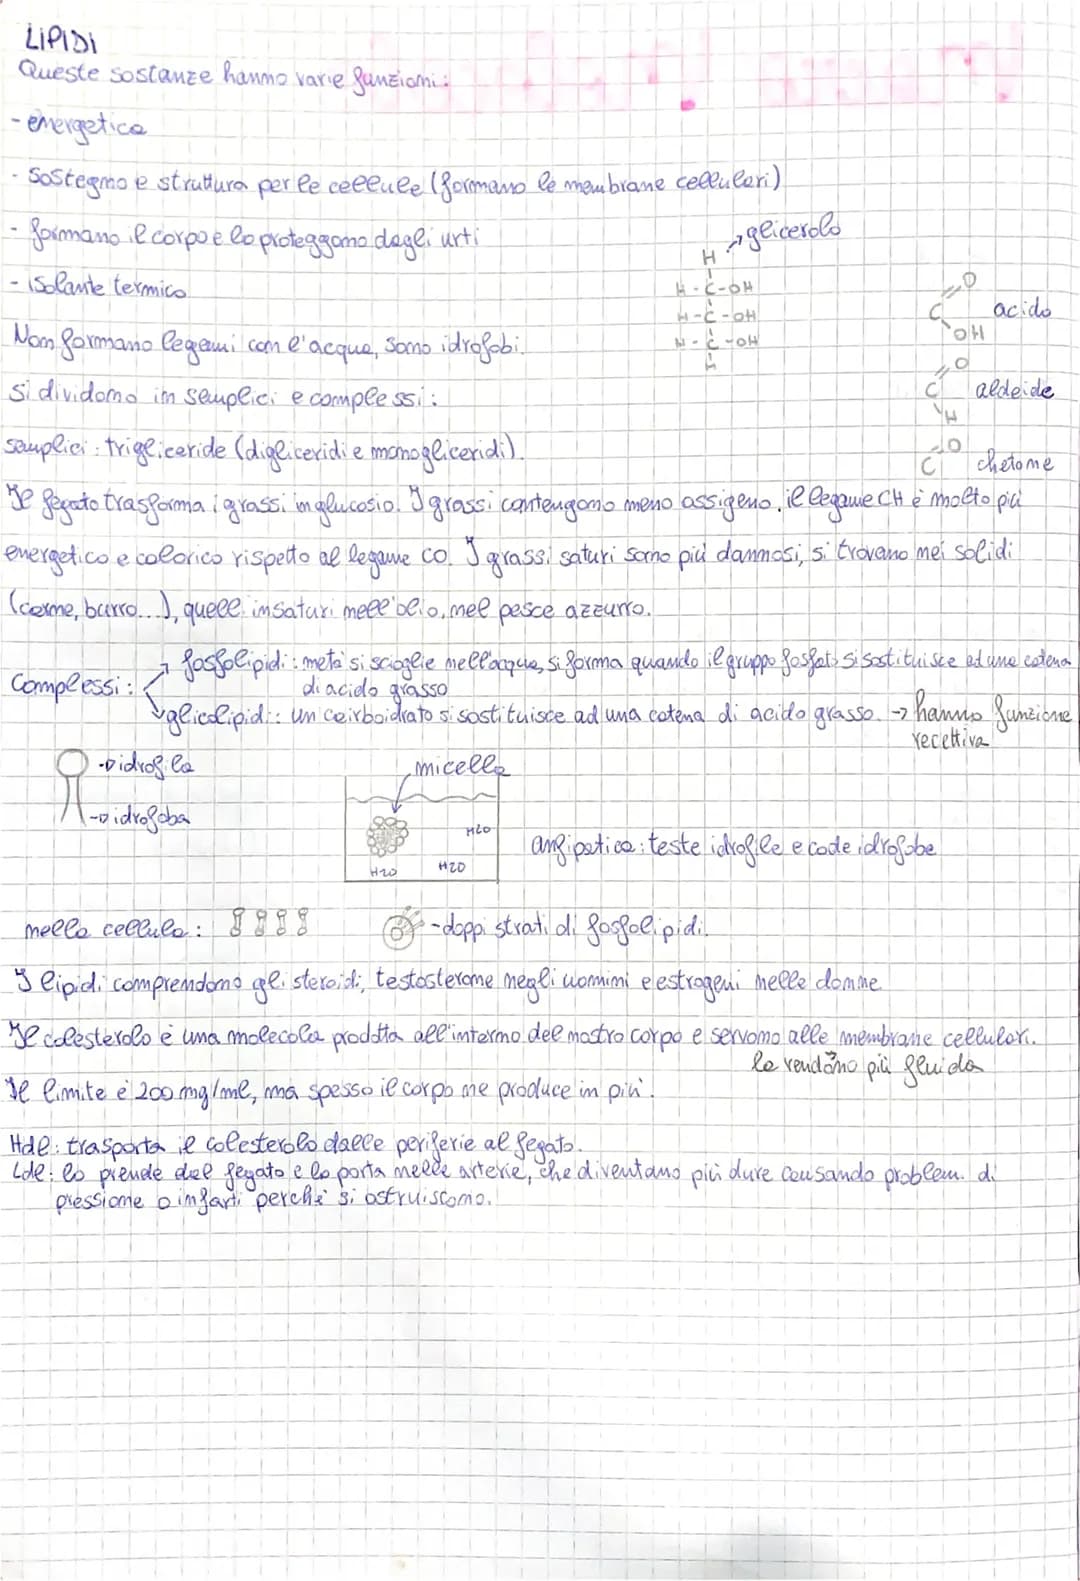 LIPIDI
Queste sostanze hanno varie funzioni:
- energetica
- sostegno e struttura per le cellule (formano le membrane cellulari)
- formano il corpo e lo proteggono dagli urti
glicerolo
- isolante termico
H
H-C-OH
H-C-OH
H-C-OH
H
C=O
OH
acido
Non formano legami con l'acqua, sono idrofobi.
Si dividono in semplici e complessi:
C=O
H
aldeide
semplici: trigliceride (digliceridi e monogliceridi).
C=O
chetone
Il fegato trasforma i grassi in glucosio. I grassi contengono meno ossigeno, il legame CH è molto più
energetico e calorico rispetto al legame CO. I grassi saturi sono più dannosi, si trovano nei solidi
(carne, burro...), quelli insaturi nell'olio, nel pesce azzurro.
Complessi:
fosfolipidi: metà si scioglie nell'acqua, si forma quando il gruppo fosfato si sostituisce ad una catena
di acido grasso
glicolipidi: un carboidrato si sostituisce ad una catena di acido grasso. → hanno funzione
recettiva
idrofila
micella
idrofoba
H2O
H2O
H2O
anfipatica: teste idrofile e code idrofobe
nella cellula:
- doppi strati di fosfolipidi.
I lipidi comprendono gli steroidi; testosterone negli uomini e estrogeni nelle donne
Il colesterolo è una molecola prodotta all'interno del nostro corpo e servono alle membrane cellulari.
la rendono più fluida
Il limite è 200 mg/ml, ma spesso il corpo ne produce in più.
Hdl: trasporta il colesterolo dalle periferie al fegato.
Ldl: lo prende dal fegato e lo porta nelle arterie, che diventano più dure causando problemi di
pressione o infarti perché si ostruiscono.